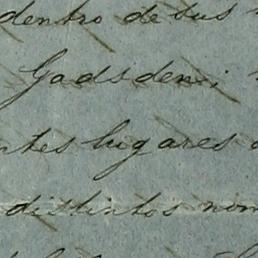 dentro de sus
Gadsden;
ntes lugares
distintos nom